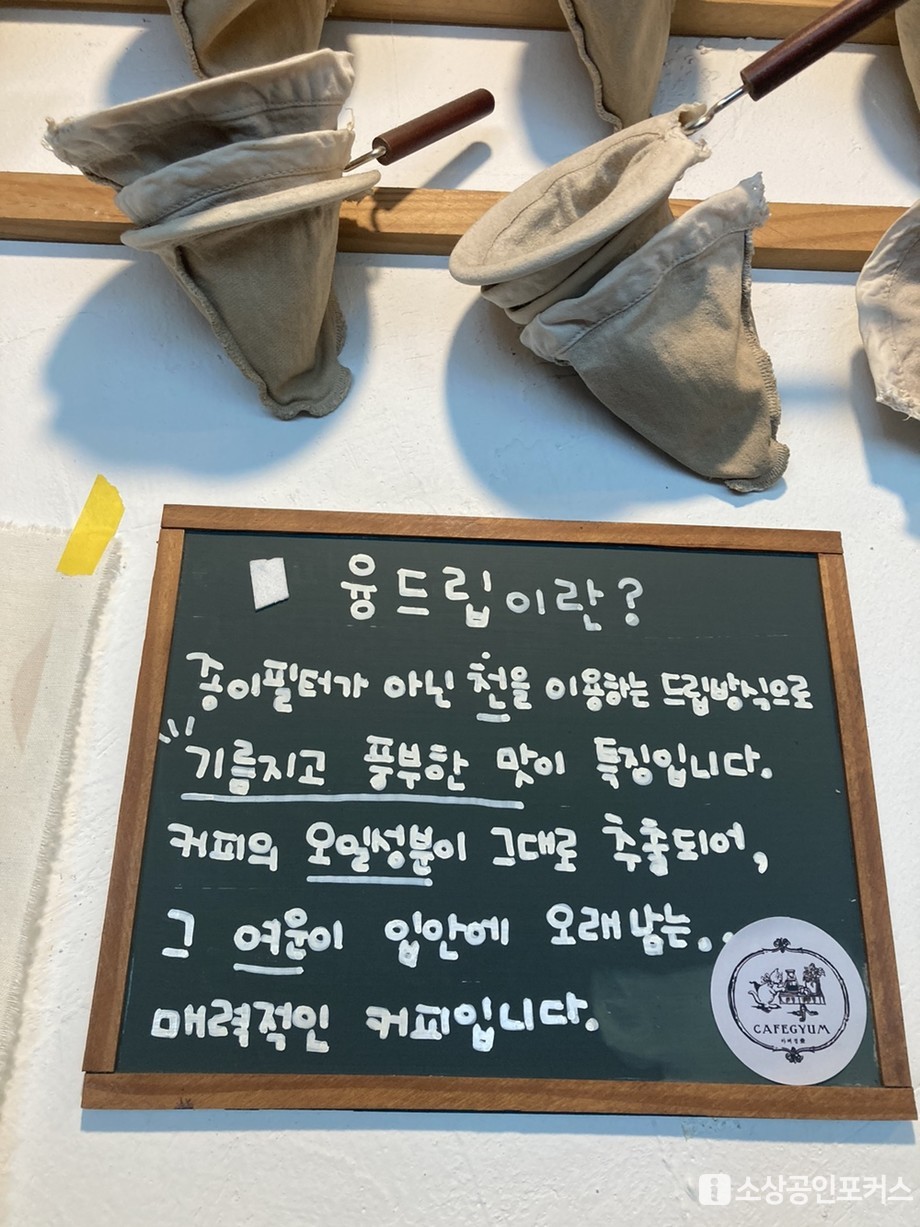 융드립이란?
종이필터가 아닌 천을 이용하는 드립방식으로
기름지고 풍부한 맛이 특징입니다.
커피의 오일성분이 그대로 추출되어,
그 여운이 입안에 오래 남는..
매력적인 커피입니다.
CAFEGYUM
소상공인포커스